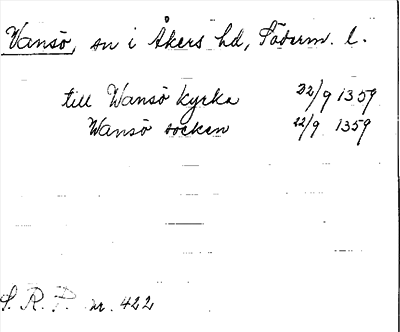 Vansö, sn i Åkers hd, Söderm. l.
till Wansö kyrka 22/9 1359
Wansö socken 22/9 1359
S. R. P. nr. 422